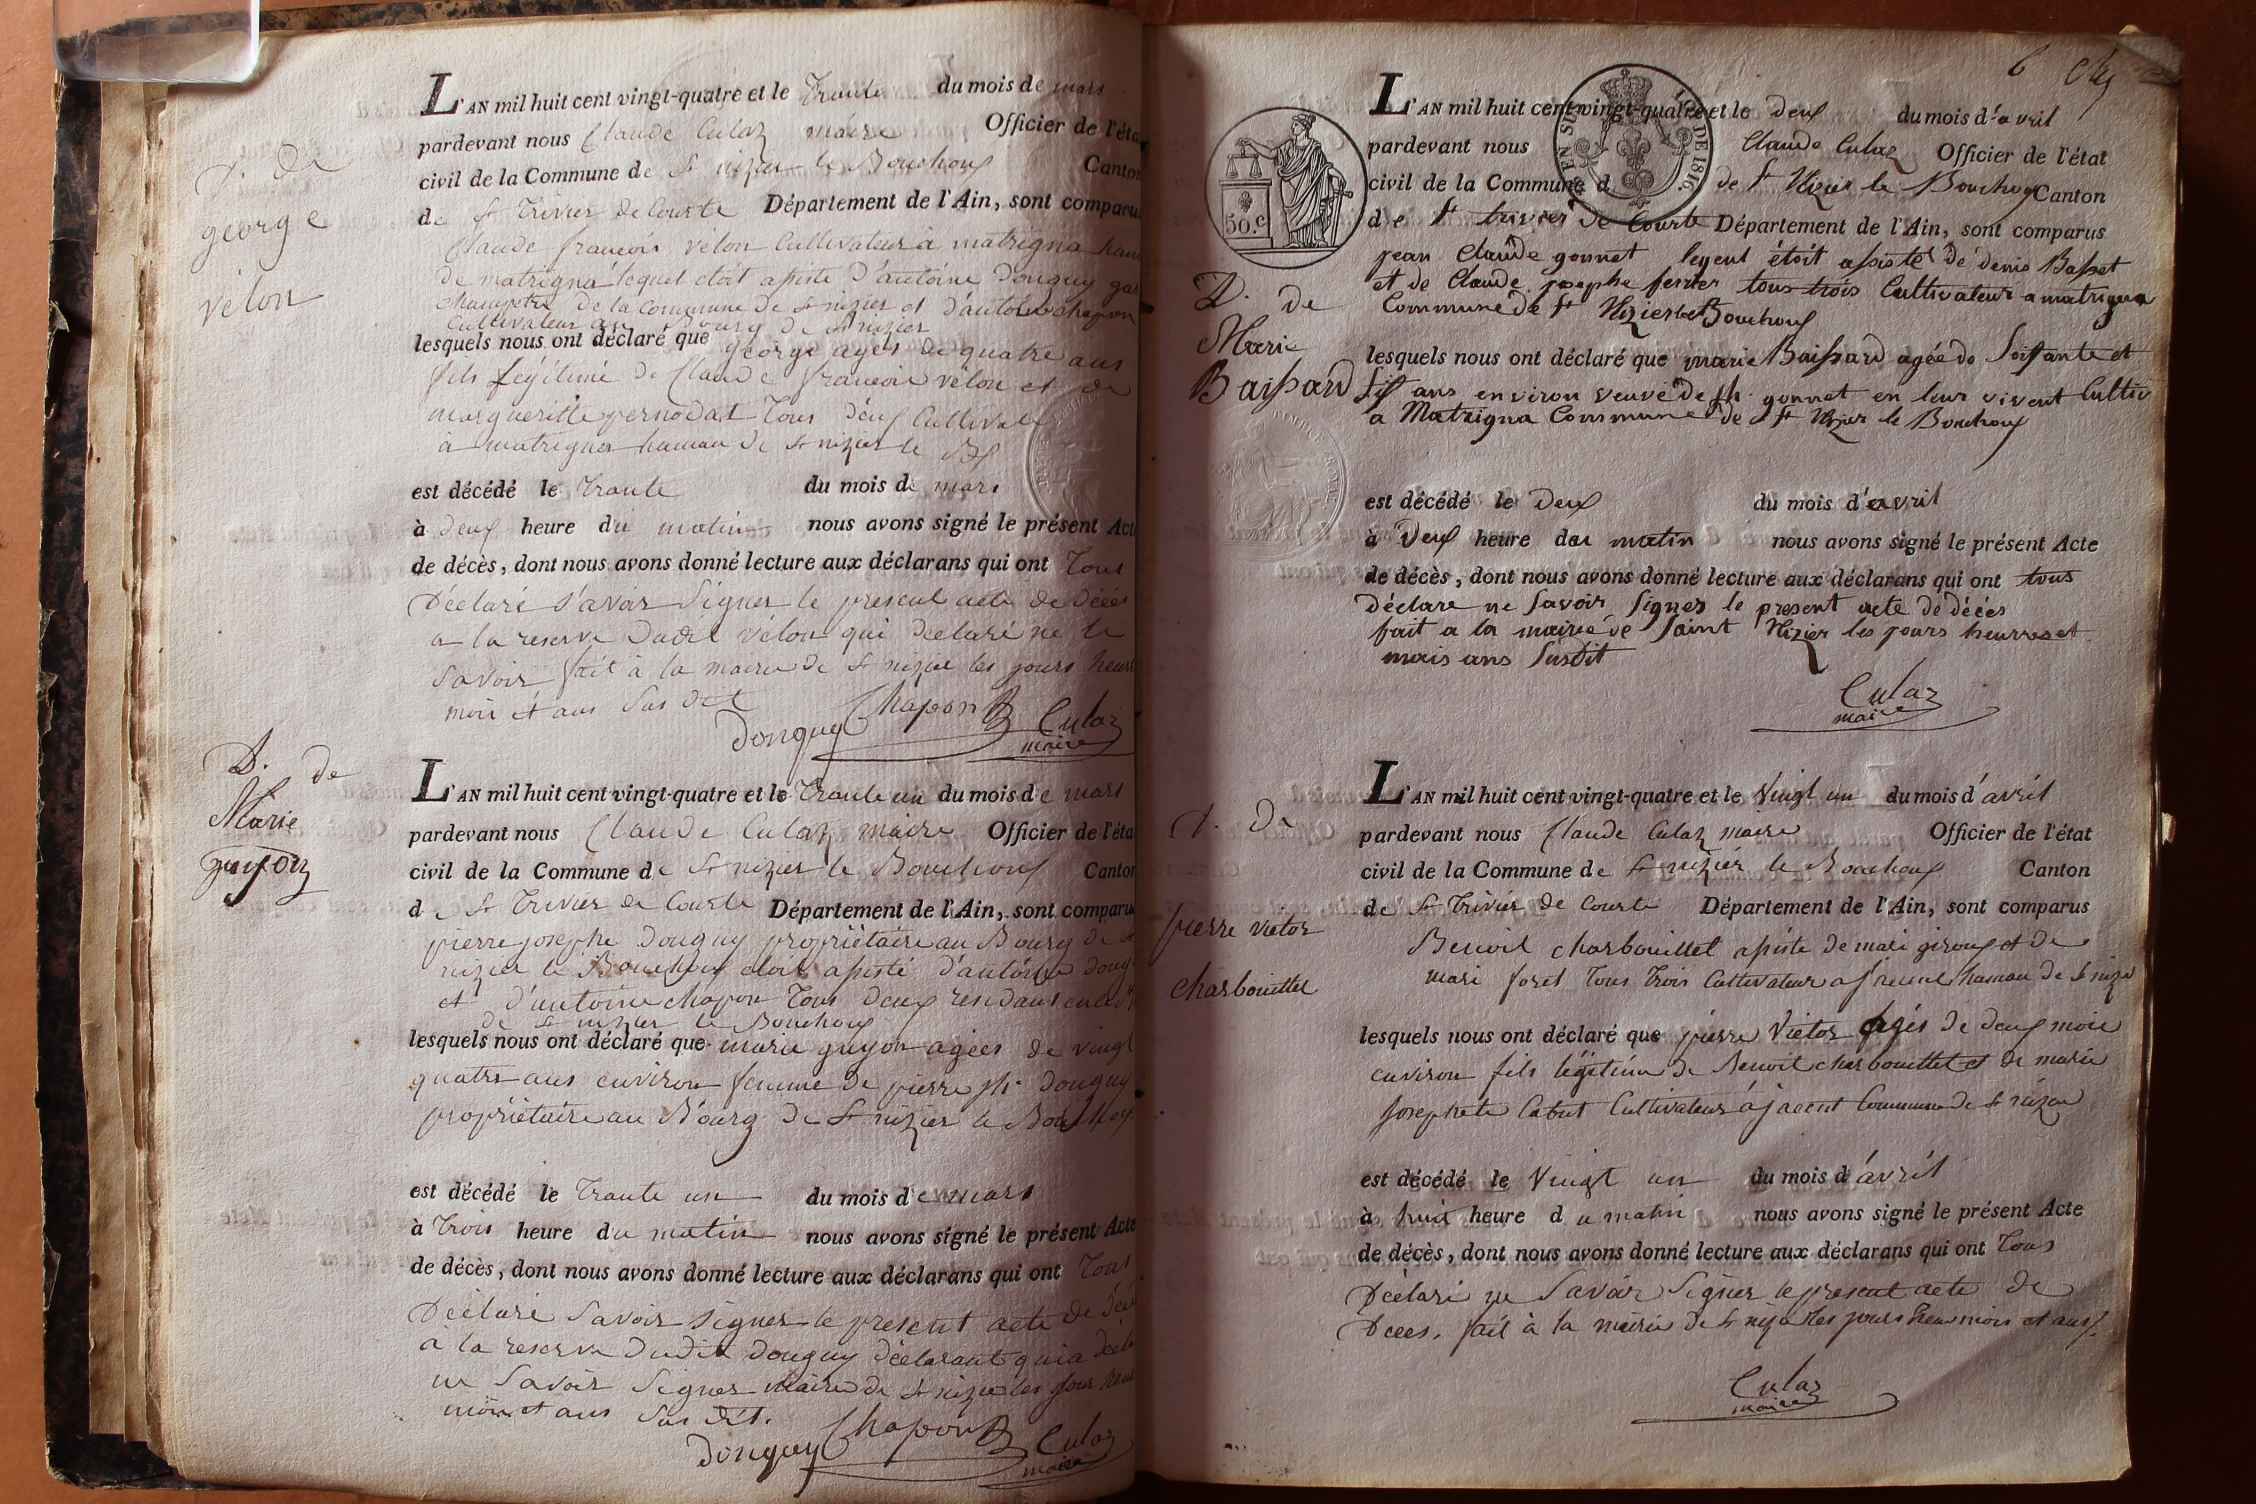 D. de
george
vélon
L'AN mil huit cent vingt-quatre et le Trante du mois de mars
pardevant nous Claude Culaz maire Officier de l'éta
civil de la Commune de St nizier le Bouchoux Canton
de St Trivier de Courte Département de l'Ain, sont comparu
Claude francois vélon Cultivateur à matrigna ham
de matrigna lequel etoit apisté d'antoine Donguy gar
champetre de la Commune de St nizier et d'antoine chapon
Cultivateur au Bourg de St nizier
lesquels nous ont déclaré que george agés de quatre ans
fils Légitime de Claude francois vélon et de
margueritte pernodat Tous deux Cultivate
à matrigna hamau de St nizier le BX
est décédé le Trante du mois de mars
à deux heure du matin nous avons signé le présent Act
de décès, dont nous avons donné lecture aux déclarans qui ont Tous
Déclaré s'avoir Signer le present acte de Décés
a la reserve Dudit vélon qui déclaré ne le
savoir fait à la mairie de St nizier les jours heure
mois et ans Sus dit
Donguy Chapon Culaz
maire
D. de
Marie
guyon
L'AN mil huit cent vingt-quatre et le Trante un du mois de mars
pardevant nous Claude Culaz maire Officier de l'éta
civil de la Commune de St nizier le Bouchoux Canton
de St Trivier de Courte Département de l'Ain, sont comparu
pierre josephe Donguy propriétaire au Bourg de St
nizier le Bouchoux etoit apisté d'antoine Dong
et d'antoine chapon Tous deux residans
de St nizier le Bouchoux
lesquels nous ont déclaré que marie guyon agées de vingt
quatre ans environ femme de pierre jh. Donguy
propriétaire au Bourg de St nizier le Bouchoux
est décédé le Trante un du mois de mars
à Trois heure du matin nous avons signé le présent Acte
de décès, dont nous avons donné lecture aux déclarans qui ont Tous
Déclaré Savoir Signer le present acte de
à la reserve Dudit donguy déclarant qui a
ne Savoir Signer mairie de St nizier les jour heur
mois et ans Sus dit.
Donguy Chapon Culaz
maire
6
L'AN mil huit cent vingt-quatre et le Deux du mois d'avril
50.C
DE 1816.
pardevant nous Claude Culaz Officier de l'état
civil de la Commune d de St Nizier le Bouchoux Canton
de St trivier de Courte Département de l'Ain, sont comparus
jean Claude gonnet leqeul étoit apisté de denis Basset
et de Claude josephe ferrier tous trois Cultivateur a matrigna
Commune de St Nizier le Bouchoux
D. de
Marie
Baissard
lesquels nous ont déclaré que marie Baissard agée de Soissante et
six ans environ veuve de jh. gonnet en leur vivent Cultiv
a Matrigna Commune de St Nizier le Bouchoux
est décédé le Deux du mois d'avril
à Deux heure du matin nous avons signé le présent Acte
de décès, dont nous avons donné lecture aux déclarans qui ont tous
déclare ne Savoir Signer le present acte de décés
fait a la mairie de Saint Nizier les jours heurres et
mois ans Susdit
Culaz
maire
D. de
pierre victor
charbouillet
L'AN mil huit cent vingt-quatre et le Vingt un du mois d'avril
pardevant nous Claude Culaz maire Officier de l'état
civil de la Commune de St nizier le Bouchoux Canton
de St Trivier de Courte Département de l'Ain, sont comparus
Benoit charbouillet apisté de mari giroux et de
mari foret Tous Trois Cultivateur a hamau de St nizie
lesquels nous ont déclaré que pierre Victor agés de deux mois
environ fils légitime de Benoit charbouillet et de marie
josephete Cabut Cultivateur à jacent Commune de St nizier
est décédé le Vingt un du mois d'avril
à huit heure du matin nous avons signé le présent Acte
de décès, dont nous avons donné lecture aux déclarans qui ont Tous
Déclaré ne Savoir Signer le present acte de
Décés. fait à la mairie de St nizier les jours heur mois et ans.
Culaz
maire